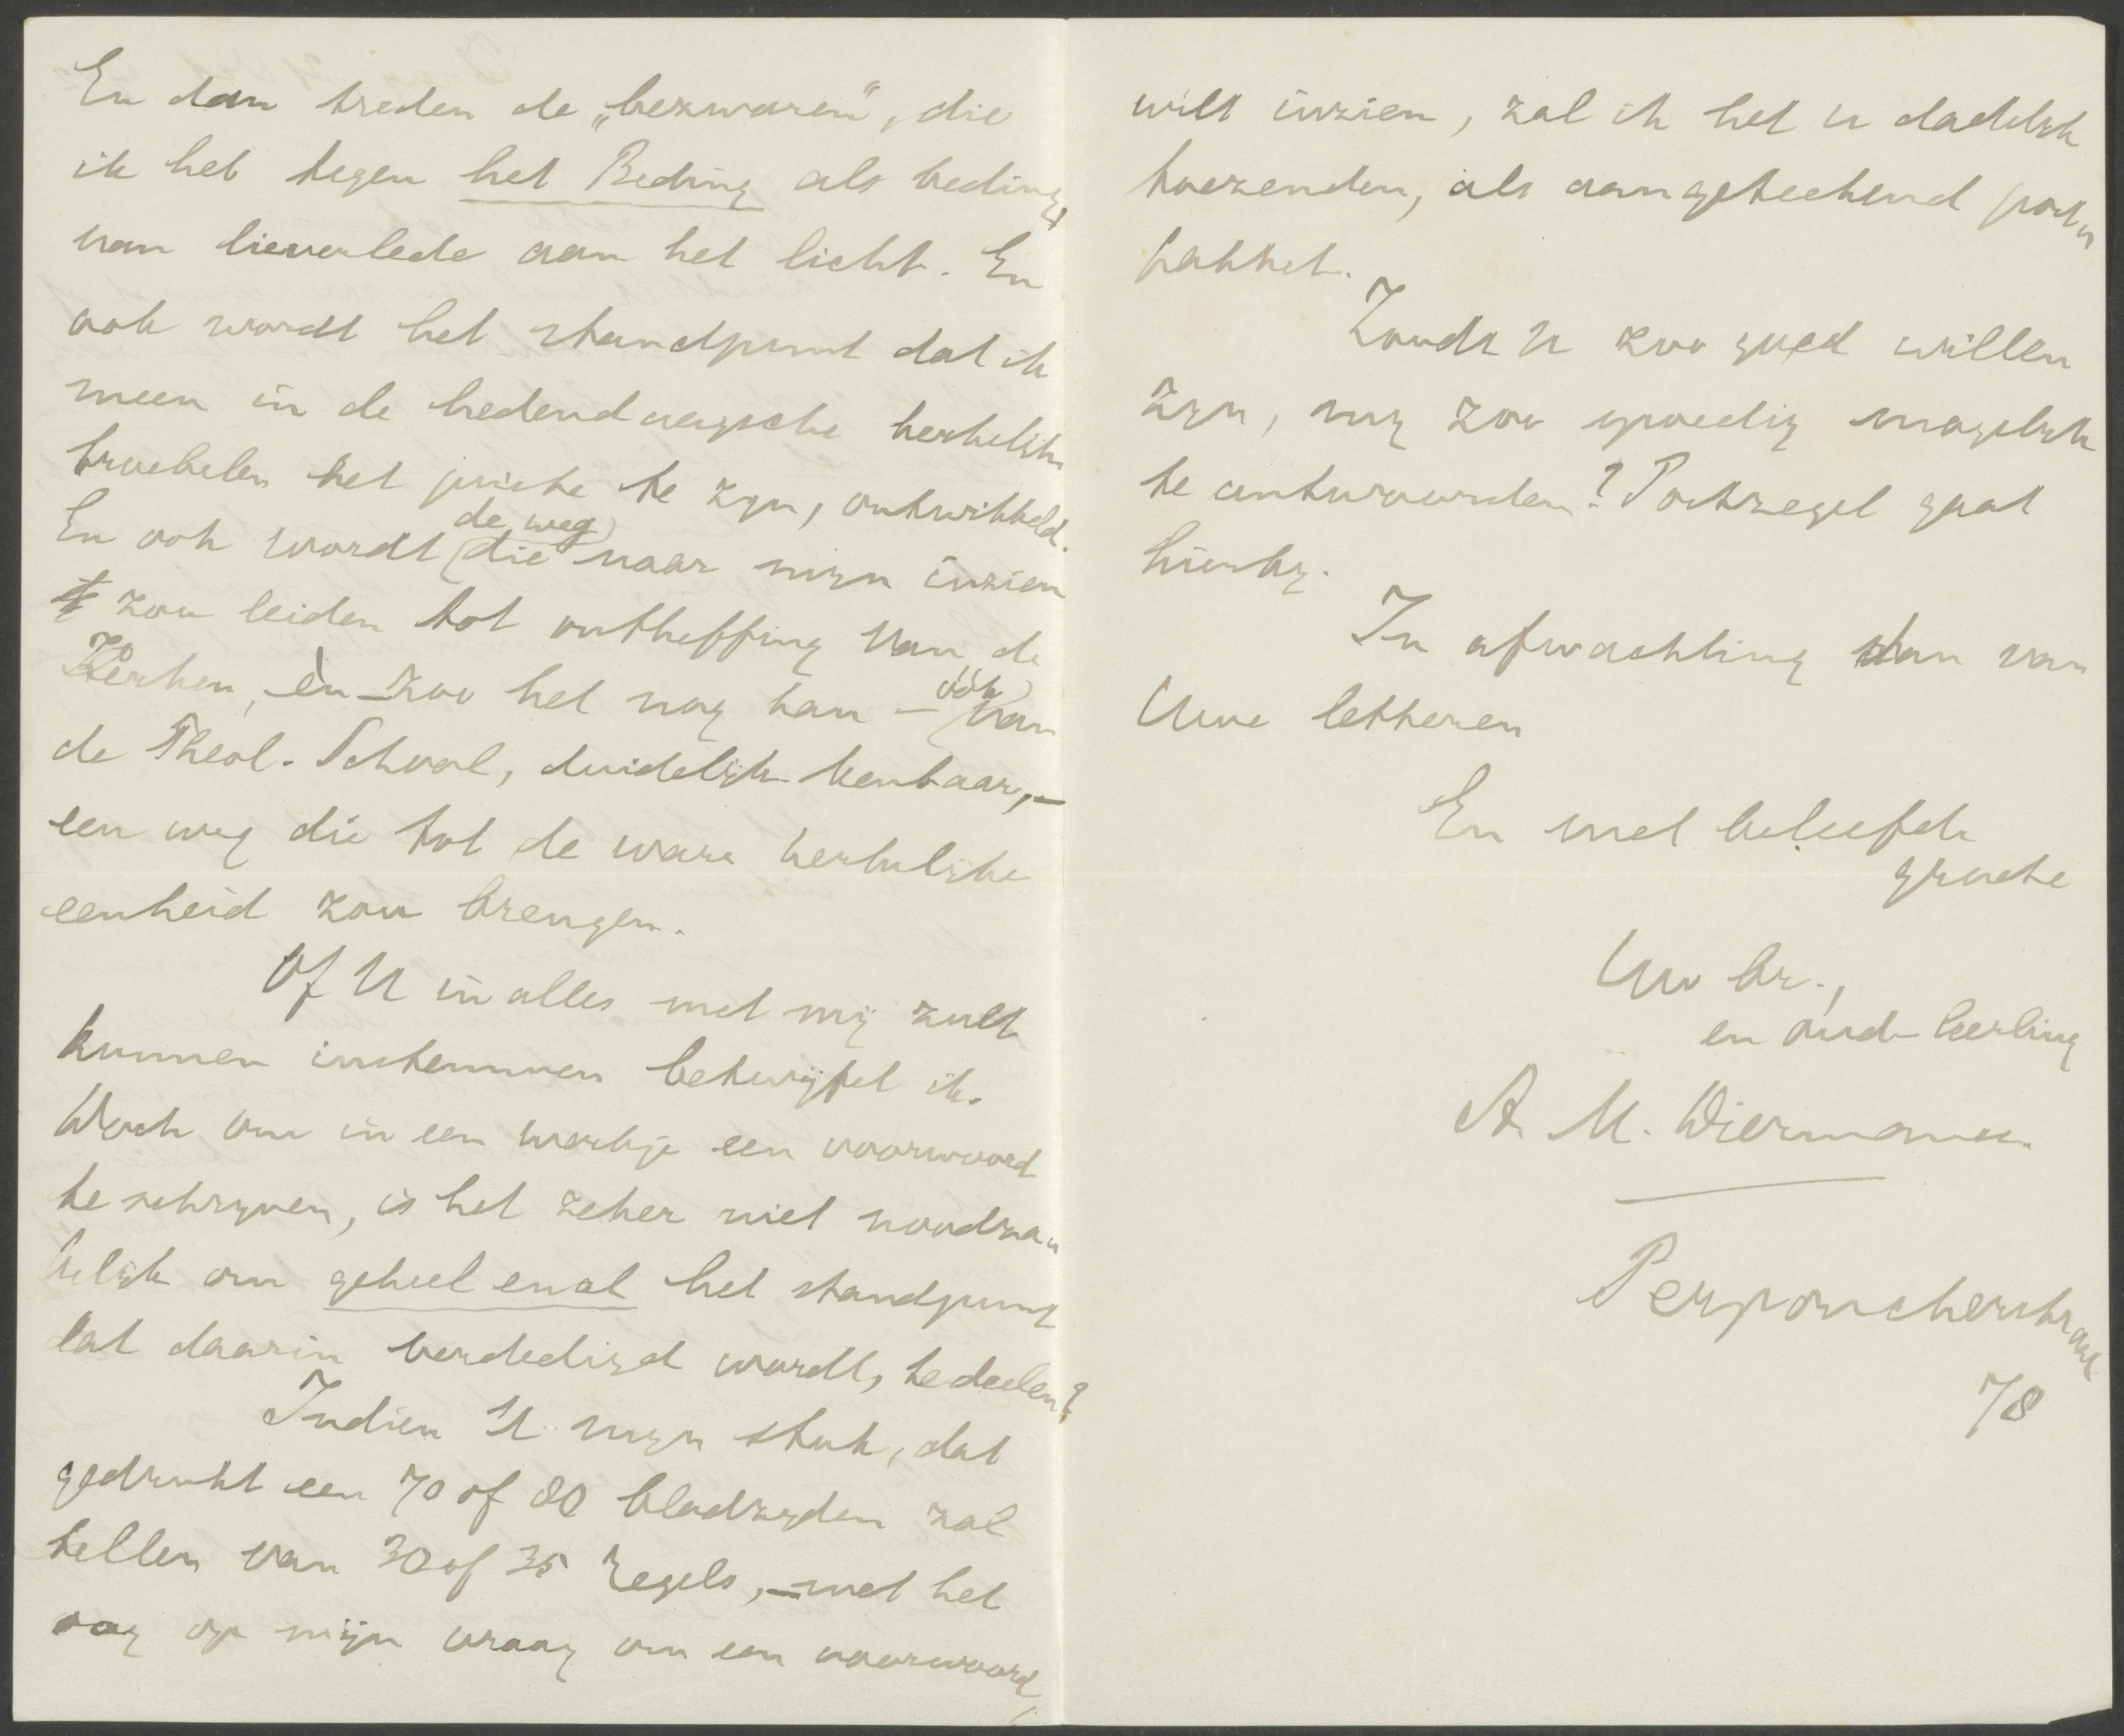 En dan treden de „bezwaren”, die
ik heb tegen het Beding als beding,
van lieverlede aan het licht. En
ook wordt het standpunt dat ik
meen in de hedendaagsche kerkelijke
troebelen het juiste te zijn, ontwikkeld.
En ook wordt de weg die naar mijn inzien
zou leiden tot ontheffing van de
Kerken, èn – zoo het nog kan – óók van
de Theol. School, duidelijk kenbaar, –
een weg die tot de ware kerkelijke
eenheid zou brengen.
Of U in alles met mij zult
kunnen instemmen betwijfel ik.
Doch om in een werkje een voorwoord
te schrijven, is het zeker niet noodza„
kelijk om geheel en al het standpunt
dat daarin verdedigd wordt, te deelen?
Indien U mijn stuk, dat
gedrukt een 70 of 80 bladzijden zal
tellen van 30 of 35 regels, – met het
oog op mijn vraag om een voorwoord,
wilt inzien, zal ik het u dadelijk
toezenden, als aangeteekend post„
pakket.
Zoudt U zoo goed willen
zijn, mij zoo spoedig mogelijk
te antwoorden? Postzegel gaat
hierbij.
In afwachting dan van
Uwe letteren
En met beleefde
groete
Uw br.,
en oud-leerling
A. M. Diermanse.
Perponcherstraat
78